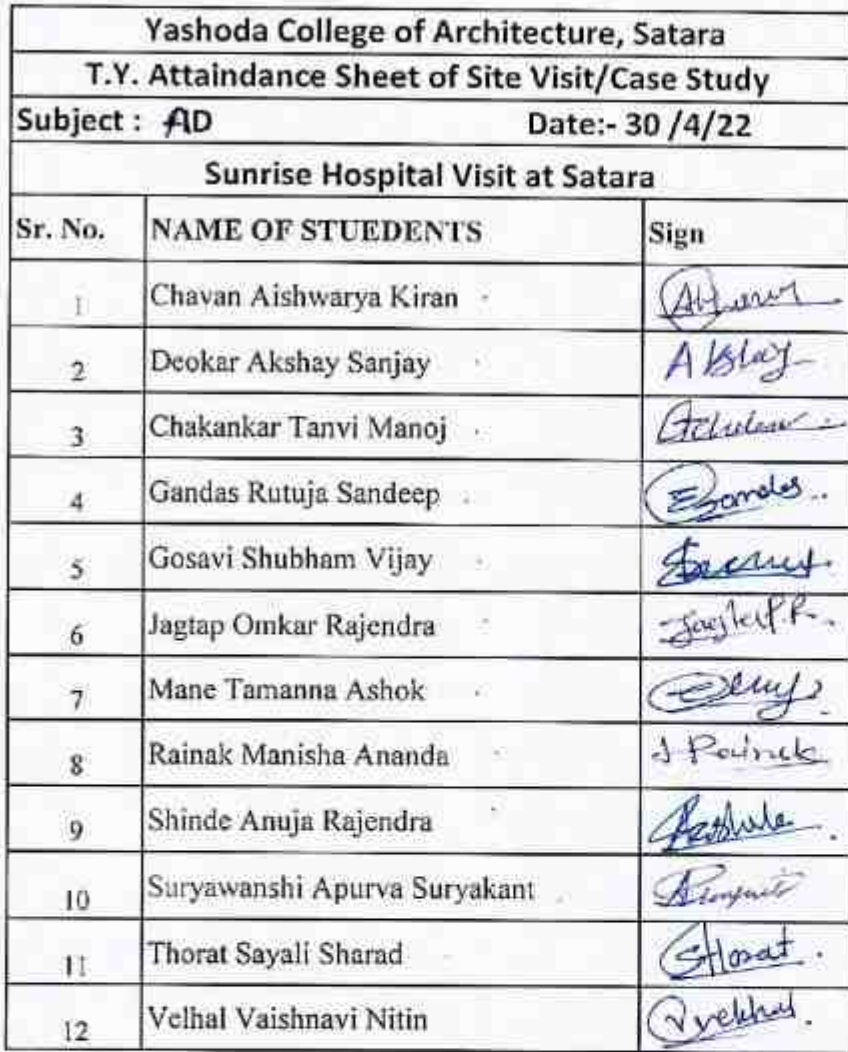 Yashoda College of Architecture, Satara
T.Y. Attaindance Sheet of Site Visit/Case Study
Subject : AD Date:- 30 /4/22
Sunrise Hospital Visit at Satara
Sr. No. NAME OF STUEDENTS Sign
1 Chavan Aishwarya Kiran
2 Deokar Akshay Sanjay Akshay
3 Chakankar Tanvi Manoj
4 Gandas Rutuja Sandeep
5 Gosavi Shubham Vijay
6 Jagtap Omkar Rajendra
7 Mane Tamanna Ashok
8 Rainak Manisha Ananda Rainak
9 Shinde Anuja Rajendra
10 Suryawanshi Apurva Suryakant
11 Thorat Sayali Sharad SThorat.
12 Velhal Vaishnavi Nitin